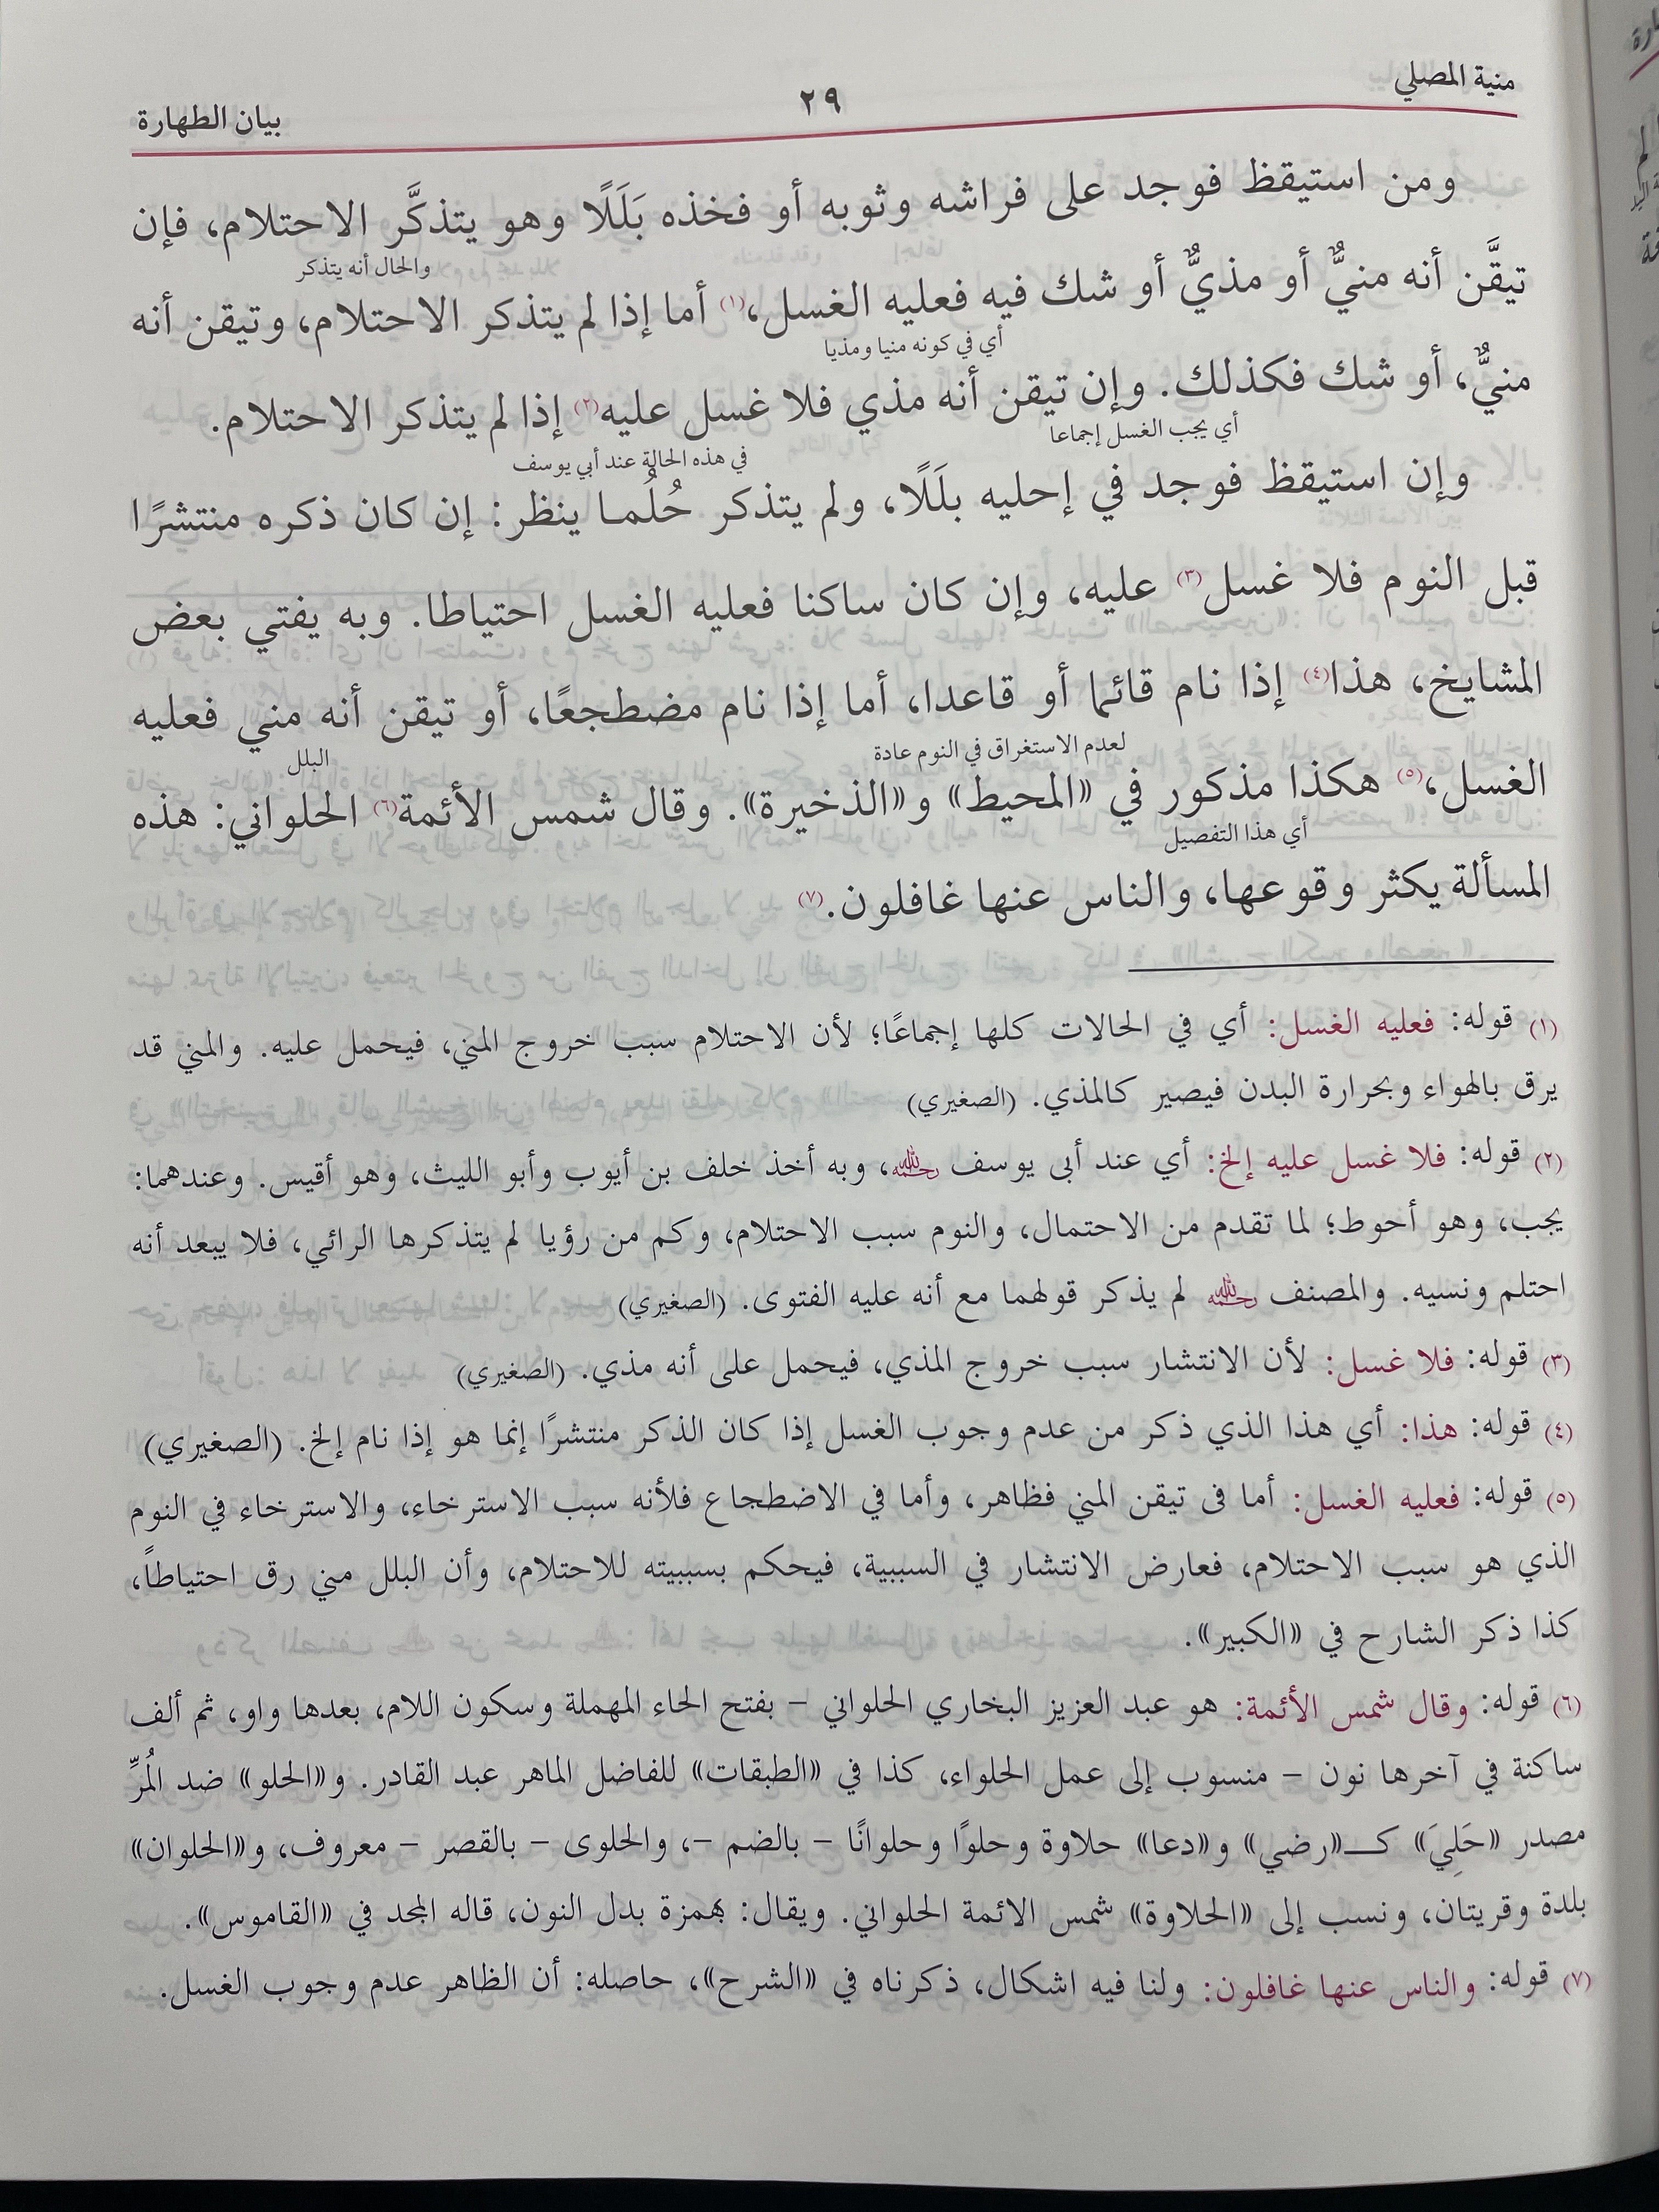 منية المصلي
٢٩
بيان الطهارة
ومن استيقظ فوجد على فراشه وثوبه أو فخذه بَلَلًا وهو يتذكَّر الاحتلام، فإن
والحال أنه يتذكر
تيقَّن أنه منيٌّ أو مذيٌّ أو شك فيه فعليه الغسل،(١) أما إذا لم يتذكر الاحتلام، وتيقن أنه
أي في كونه منيا ومذيا
منيٌّ، أو شك فكذلك. وإن تيقن أنه مذي فلا غسل عليه(٢) إذا لم يتذكر الاحتلام.
أي يجب الغسل إجماعا
في هذه الحالة عند أبي يوسف
وإن استيقظ فوجد في إحليه بلَلًا، ولم يتذكر حُلُما ينظر: إن كان ذكره منتشرًا
قبل النوم فلا غسل(٣) عليه، وإن كان ساكنا فعليه الغسل احتياطا. وبه يفتي بعض
المشايخ، هذا(٤) إذا نام قائما أو قاعدا، أما إذا نام مضطجعًا، أو تيقن أنه مني فعليه
لعدم الاستغراق في النوم عادة
البلل
الغسل،(٥) هكذا مذكور في «المحيط» و«الذخيرة». وقال شمس الأئمة(٦) الحلواني: هذه
أي هذا التفصيل
المسألة يكثر وقوعها، والناس عنها غافلون.(٧)
(١) قوله: فعليه الغسل: أي في الحالات كلها إجماعًا؛ لأن الاحتلام سبب خروج المني، فيحمل عليه. والمني قد
يرق بالهواء وبحرارة البدن فيصير كالمذي. (الصغيري)
(٢) قوله: فلا غسل عليه إلخ: أي عند أبى يوسف رحمه الله، وبه أخذ خلف بن أيوب وأبو الليث، وهو أقيس. وعندهما:
يجب، وهو أحوط؛ لما تقدم من الاحتمال، والنوم سبب الاحتلام، وكم من رؤيا لم يتذكرها الرائي، فلا يبعد أنه
احتلم ونسيه. والمصنف رحمه الله لم يذكر قولهما مع أنه عليه الفتوى. (الصغيري)
(٣) قوله: فلا غسل: لأن الانتشار سبب خروج المذي، فيحمل على أنه مذي. (الصغيري)
(٤) قوله: هذا: أي هذا الذي ذكر من عدم وجوب الغسل إذا كان الذكر منتشرًا إنما هو إذا نام إلخ. (الصغيري)
(٥) قوله: فعليه الغسل: أما فى تيقن المني فظاهر، وأما في الاضطجاع فلأنه سبب الاسترخاء، والاسترخاء في النوم
الذي هو سبب الاحتلام، فعارض الانتشار في السببية، فيحكم بسببيته للاحتلام، وأن البلل مني رق احتياطاً،
كذا ذكر الشارح في «الكبير».
(٦) قوله: وقال شمس الأئمة: هو عبد العزيز البخاري الحلواني – بفتح الحاء المهملة وسكون اللام، بعدها واو، ثم ألف
ساكنة في آخرها نون – منسوب إلى عمل الحلواء، كذا في «الطبقات» للفاضل الماهر عبد القادر. و«الحلو» ضد المُرِّ
مصدر «حَلِيَ» كـ«رضي» و«دعا» حلاوة وحلوًا وحلوانًا – بالضم –، والحلوى – بالقصر – معروف، و«الحلوان»
بلدة وقريتان، ونسب إلى «الحلاوة» شمس الائمة الحلواني. ويقال: بهمزة بدل النون، قاله المجد في «القاموس».
(٧) قوله: والناس عنها غافلون: ولنا فيه اشكال، ذكرناه في «الشرح»، حاصله: أن الظاهر عدم وجوب الغسل.